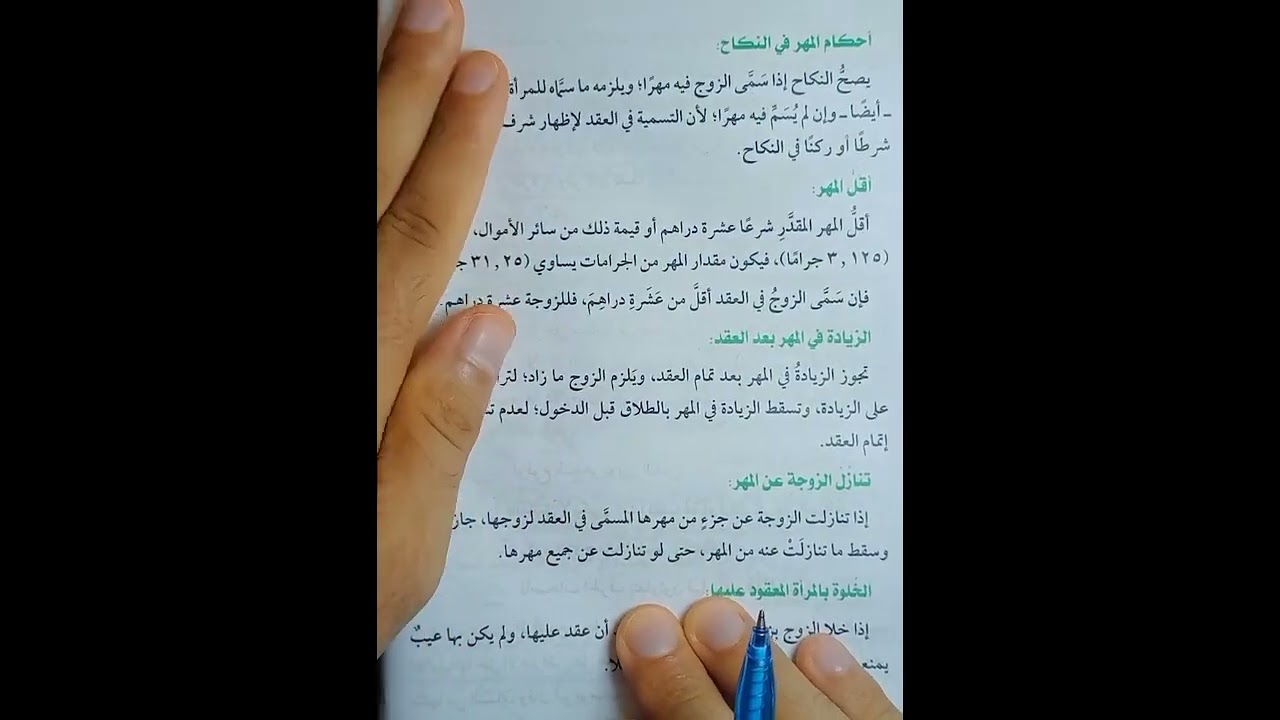 أحكام المهر في النكاح:
يصحُّ النكاح إذا سَمَّى الزوج فيه مهرًا؛ ويلزمه ما سمَّاه للمرأة
ـ أيضًا ـ وإن لم يُسَمِّ فيه مهرًا؛ لأن التسمية في العقد لإظهار شرف
شرطًا أو ركنًا في النكاح.
أقلُ المهر:
أقلُّ المهر المقدَّرِ شرعًا عشرة دراهم أو قيمة ذلك من سائر الأموال،
(٣,١٢٥ جرامًا)، فيكون مقدار المهر من الجرامات يساوي (٣١,٢٥
فإن سَمَّى الزوجُ في العقد أقلَّ من عَشَرةِ دراهِمَ، فللزوجة عشرة دراهم.
الزيادة في المهر بعد العقد:
تجوز الزيادةُ في المهر بعد تمام العقد، ويَلزم الزوج ما زاد؛
على الزيادة، وتسقط الزيادة في المهر بالطلاق قبل الدخول؛ لعدم
إتمام العقد.
تنازُلُ الزوجة عن المهر:
إذا تنازلت الزوجة عن جزءٍ من مهرها المسمَّى في العقد لزوجها، جاز
وسقط ما تنازلَتْ عنه من المهر، حتى لو تنازلت عن جميع مهرها.
الخَلوة بالمرأة المعقود عليها:
إذا خلا الزوج أن عقد عليها، ولم يكن بها عيبٌ